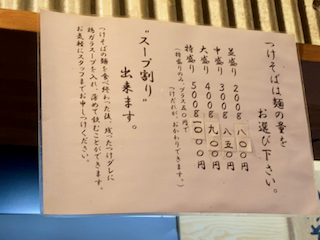 つけそばは麺の量を
お選び下さい。
並盛り 200g 八〇〇円
中盛り 300g 八五〇円
大盛り 400g 九〇〇円
特盛り 500g 一〇〇〇円
(特盛りのみ、プラス五〇円で
つけだれが、おかわりできます。)
“スープ割り”
出来ます。
つけそばの麺を食べ終わった後、残ったつけダレに
鶏ガラスープを入れ、薄めて飲むことができます。
お気軽にスタッフまでお申しつけください。